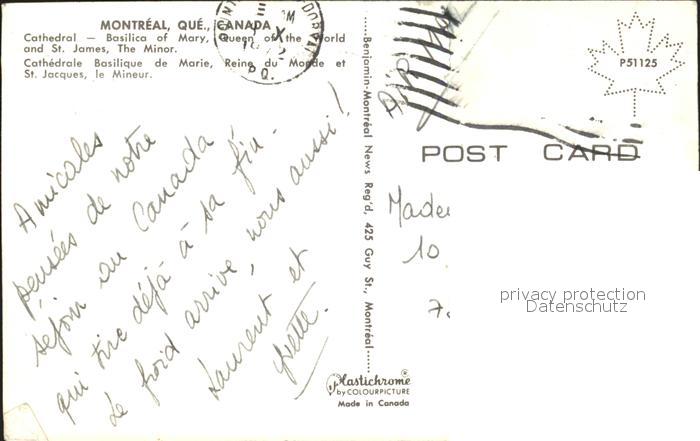 MONTRÉAL, QUÉ., CANADA
Cathedral — Basilica of Mary, Queen of the World
and St. James, The Minor.
Cathédrale Basilique de Marie, Reine du Monde et
St. Jacques, le Mineur.
P.Q.
Amicales
pensées de notre
séjour au Canada
qui tire déjà à sa fin -
Le froid arrive, nous aussi !
Laurent et
Yvette.
Benjamin-Montréal News Reg'd, 425 Guy St., Montréal
Plastichrome®
by COLOURPICTURE
Made in Canada
P51125
POST CARD
10
7.
privacy protection
Datenschutz